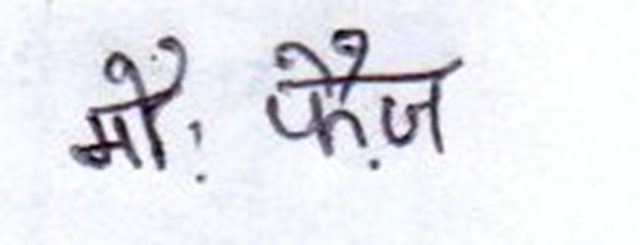 मौ: फै़ज